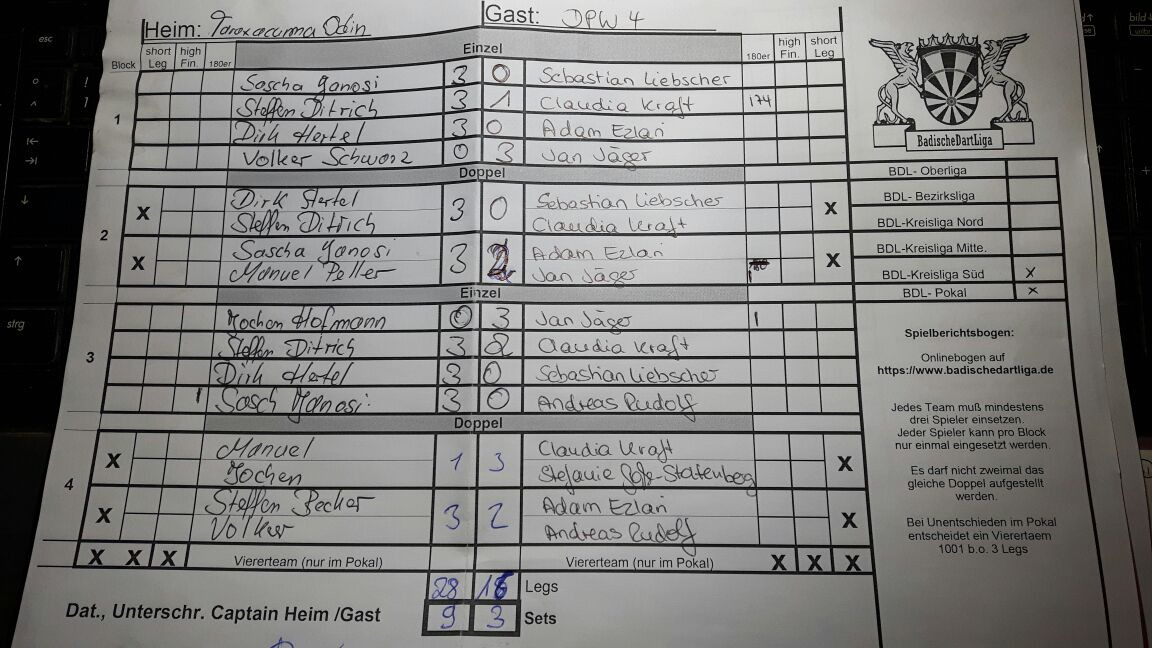 Heim: Taraxacunma Odin Gast: DPW 4
Block short Leg high Fin. 180er Einzel 180er high Fin. short Leg
1
Sascha Janosi 3 0 Sebastian Liebscher
Steffen Ditrich 3 1 Claudia Kraft 174
Dirk Hertel 3 0 Adam Ezlan
Volker Schwarz 0 3 Jan Jäger
Doppel
2
X Dirk Hertel 3 0 Sebastian Liebscher X
Steffen Ditrich Claudia Kraft
X Sascha Janosi 3 2 Adam Ezlan X
Manuel Peller Jan Jäger
Einzel
3
Jochen Hofmann 0 3 Jan Jäger 1
Steffen Ditrich 3 2 Claudia Kraft
Dirk Hertel 3 0 Sebastian Liebscher
1 Sasch Janosi 3 0 Andreas Rudolf
Doppel
4
X Manuel 1 3 Claudia Kraft X
Jochen Stefanie
X Steffen Becker 3 2 Adam Ezlan X
Volker Andreas Rudolf
X X X Viererteam (nur im Pokal) Viererteam (nur im Pokal) X X X
28 16 Legs
Dat., Unterschr. Captain Heim /Gast 9 3 Sets
BadischeDartLiga
BDL- Oberliga
BDL- Bezirksliga
BDL-Kreisliga Nord
BDL-Kreisliga Mitte.
BDL-Kreisliga Süd X
BDL- Pokal X
Spielberichtsbogen:
Onlinebogen auf
https://www.badischedartliga.de
Jedes Team muß mindestens
drei Spieler einsetzen.
Jeder Spieler kann pro Block
nur einmal eingesetzt werden.
Es darf nicht zweimal das
gleiche Doppel aufgestellt
werden.
Bei Unentschieden im Pokal
entscheidet ein Vierertaem
1001 b.o. 3 Legs
esc
strg